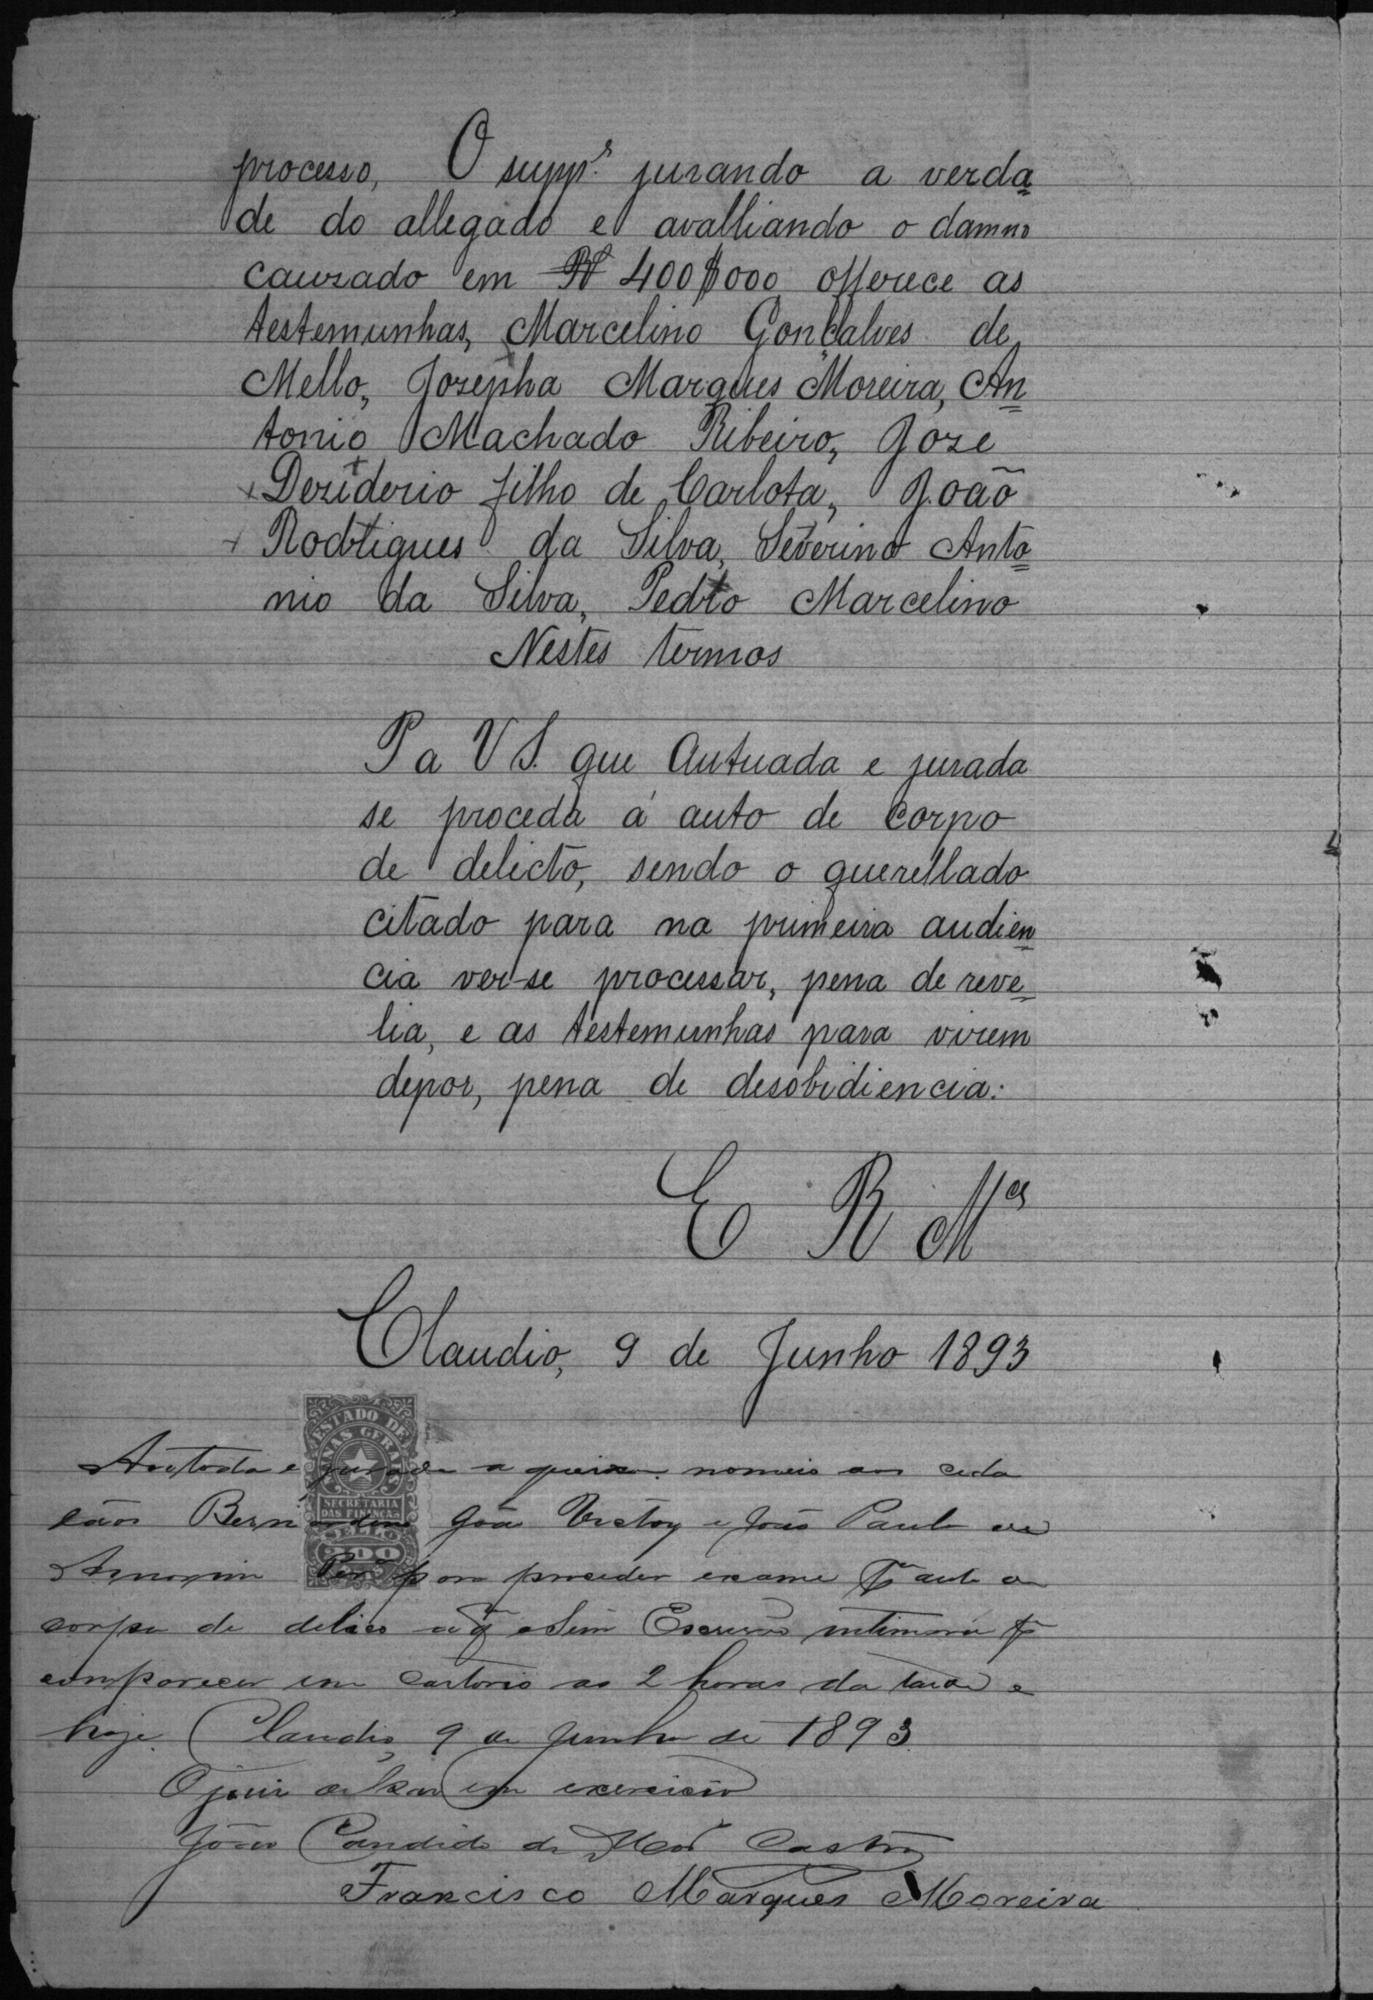 processo, O supp.e jurando a verda
de do allegado e avalliando o damno
cauzado em R 400$000 offerece as
testemunhas, Marcelino Gonçalves de
Mello, Jozepha Marques Moreira, An
tonio Machado Ribeiro, Joze
Deziderio filho de Carlota, João
Rodrigues da Silva, Severino Anto
nio da Silva, Pedro Marcelino
Nestes termos
P a V S. que Autuada e jurada
se proceda á auto de corpo
de delicto, sendo o querellado
citado para na primeira audien
cia ver-se processar, pena de reve
lia, e as testemunhas para virem
depor, pena de desobidiencia:
E R Mce
Claudio, 9 de Junho 1893
ESTADO DE
MINAS GERAES
SECRETARIA
DAS FINANÇAS
SELLO
200
e jurada a queixa nomeio aos cida
dãos João Paulo de
para proceder exame auto de
corpo de Escrivão intimará
comparecer em cartorio as 2 horas da tarde de
hoje. Claudio, 9 de Junho de 1893
O juiz de Paz em exercicio
João Candido de Castro
Francisco Marques Moreira